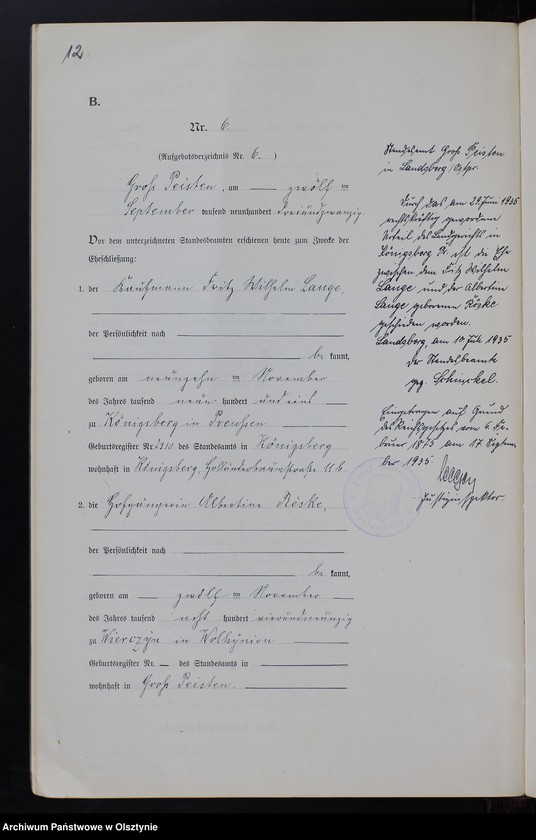 12
B.
Nr. 6.
(Aufgebotsverzeichnis Nr. 6. )
Groß Peisten, am — zwölf ten
September tausend neunhundert dreiundzwanzig.
Vor dem unterzeichneten Standesbeamten erschienen heute zum Zwecke der
Eheschließung:
1. der Kaufmann Fritz Wilhelm Lange,
der Persönlichkeit nach
be kannt,
geboren am neunzehn ten November
des Jahres tausend neun hundert und eins
zu Königsberg in Preußen
Geburtsregister Nr. 2310 des Standesamts in Königsberg
wohnhaft in Königsberg, Holländerbaumstraße 11b.
2. die Hofgängerin Albertine Röske,
der Persönlichkeit nach
be kannt,
geboren am — zwölf ten November —
des Jahres tausend acht hundert vierundneunzig
zu Wierczyn in Wolhynien
Geburtsregister Nr. — des Standesamts in
wohnhaft in Groß Peisten.
Standesamt Groß Peisten
in Landsberg /Ostpr.
Durch das am 29. Juni 1935
rechtskräftig gewordene
Urteil des Landgerichts in
Königsberg Pr. ist die Ehe
zwischen dem Fritz Wilhelm
Lange und der Albertine
Lange geborenen Röske
geschieden worden.
Landsberg, am 10. Juli 1935
Der Standesbeamte
gez. Schinckel.
Eingetragen auf Grund
des Reichsgesetzes vom 6. Fe-
bruar 1875 am 17. Septem-
ber 1935.
Justizinspektor.
Archiwum Państwowe w Olsztynie